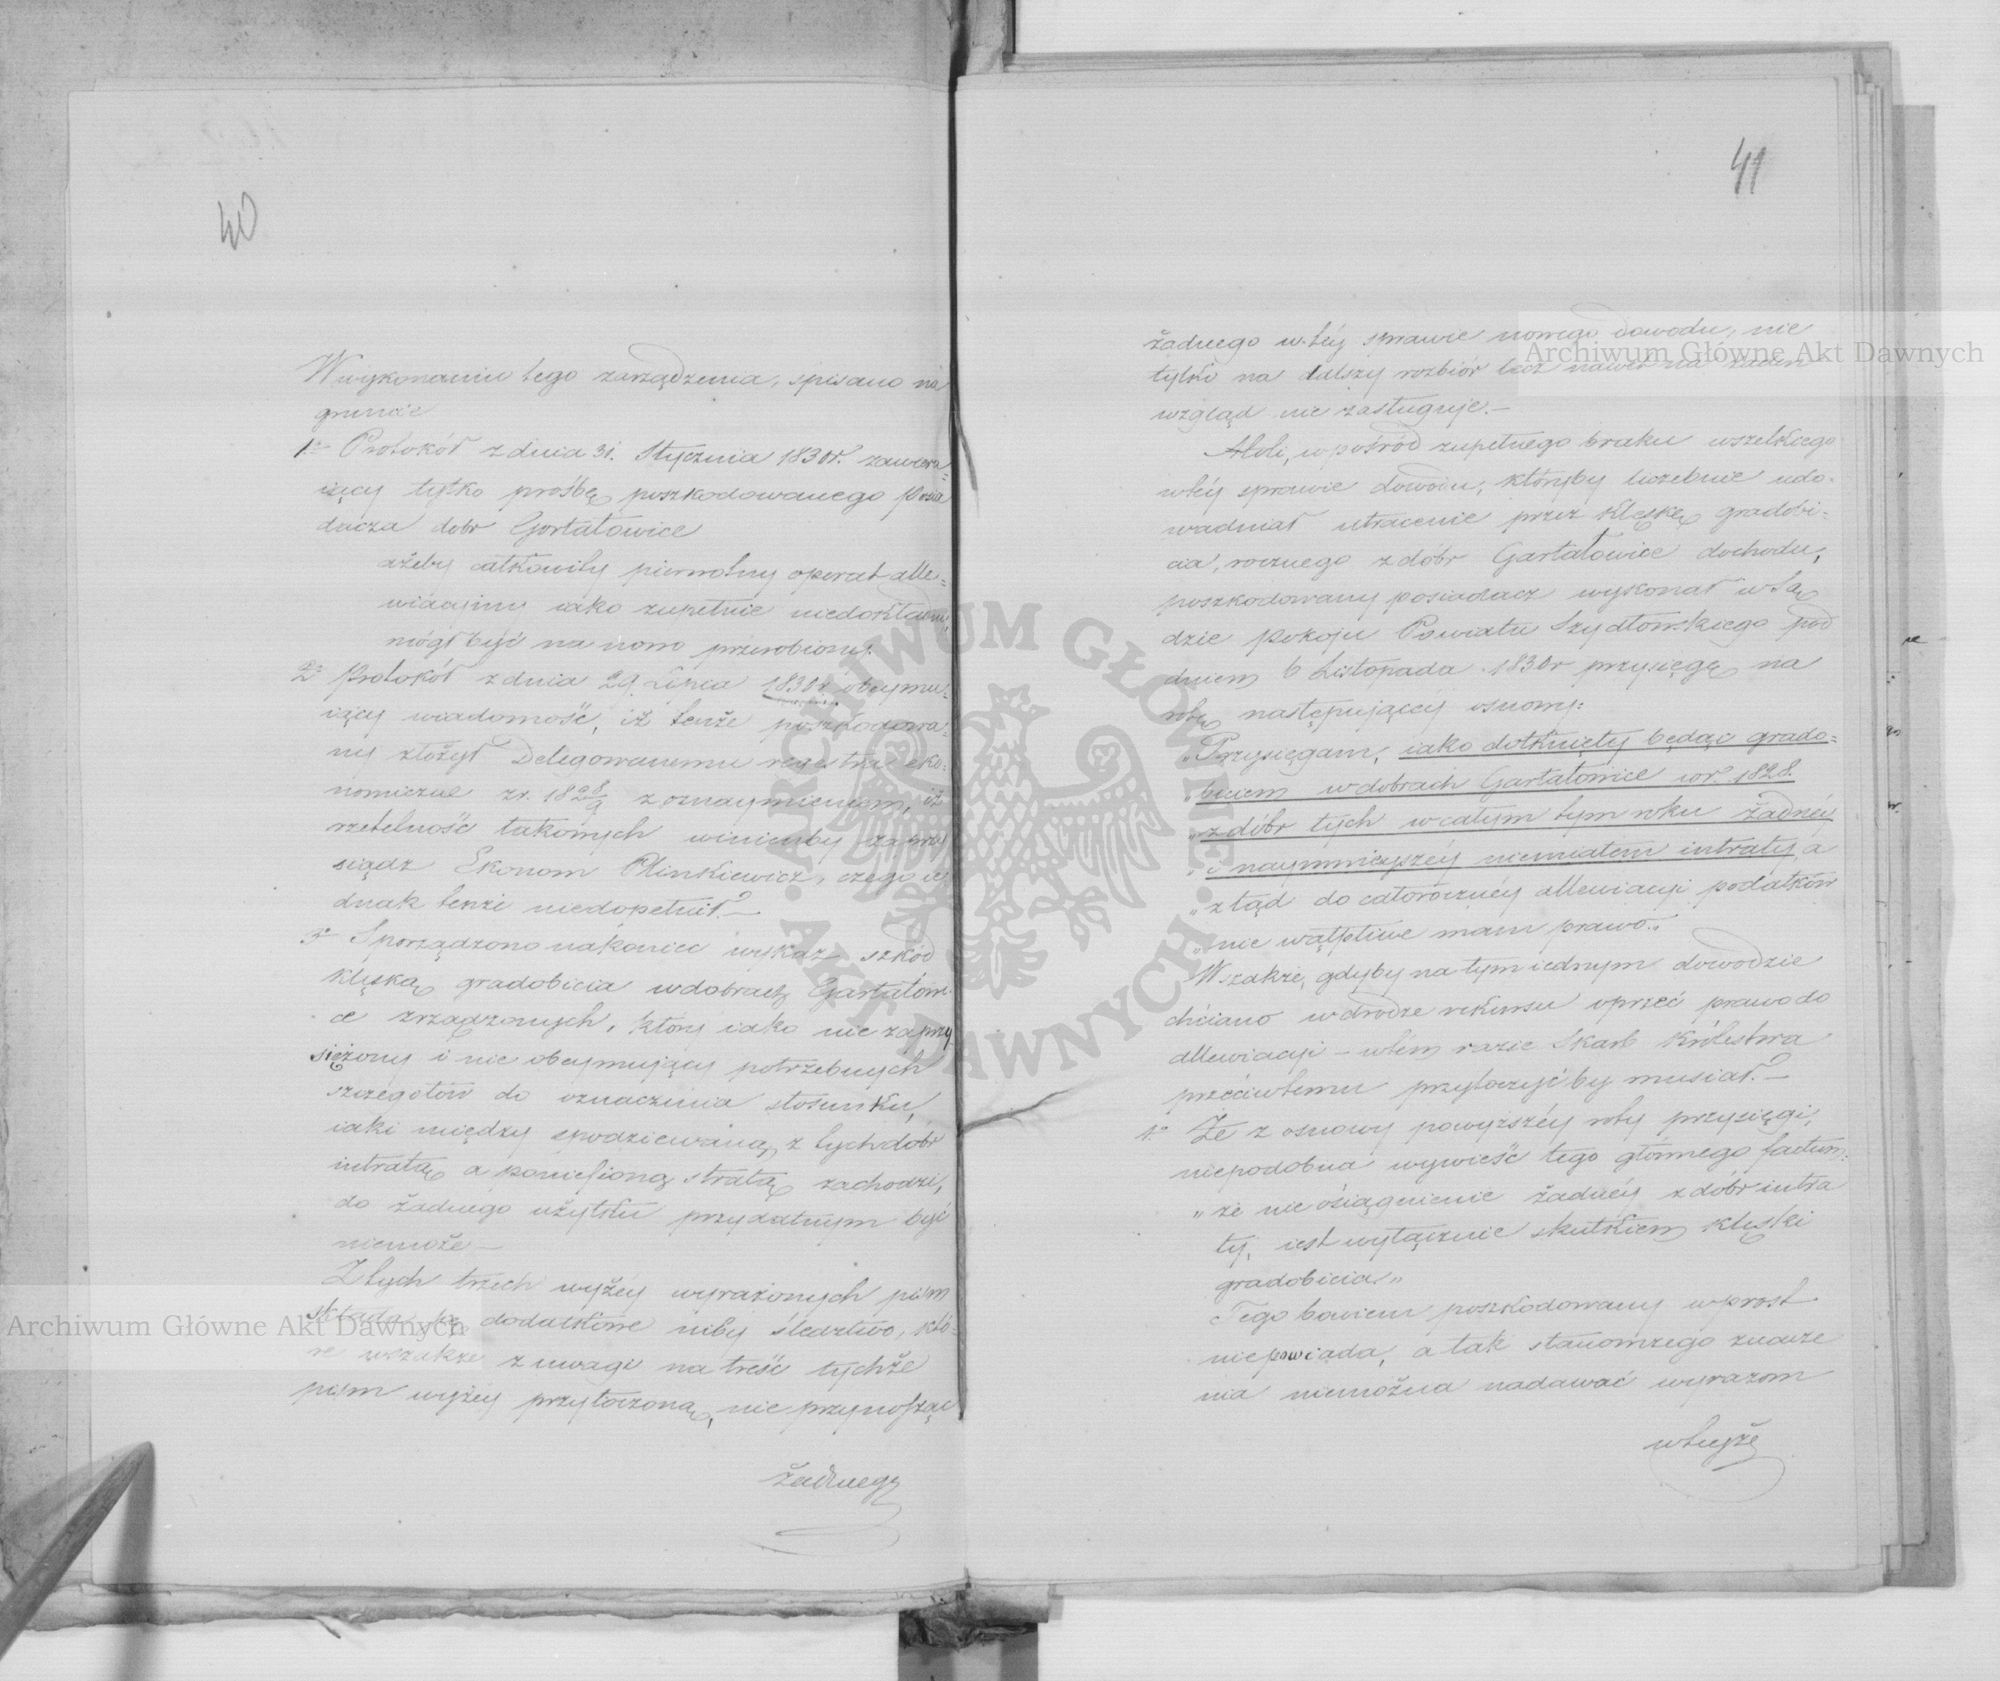 40
W wykonaniu tego zarządzenia, spisano na
gruncie
1o Protokół z dnia 31. Stycznia 1830r. zawiera-
iący tylko prośbę poszkodowanego Posia
dacza dobr Gortatowice
ażeby całkowity pierwotny operat alle-
wiacyiny iako zupełnie niedokładny,
mógł być na nowo przerobiony.
2o Protokół z dnia 29. Lipca 1830r. obeymu-
iący wiadomość, iż tenże poszkodowa-
ny złożył Delegowanemu regestra eko-
nomiczne z r. 1828/9 z oznaymieniem, iż
rzetelność takowych winienby zaprzy
siądz Ekonom Klinkiewicz, czego ie
dnak tenże niedopełnił.—
3o Sporządzono nakoniec wykaz szkód
klęską gradobicia w dobrach Gartatowi-
ce zrządzonych, który iako nie zaprzy-
siężony i nie obeymujący potrzebnych
szczegołów do oznaczenia stosunku,
iaki między spodziewaną z tych dóbr
intratą a poniesioną stratą zachodzi,
do żadnego użytku przydatnym być
niemoże—
Z tych trzech wyżéy wyrażonych pism
składa się dodatkowe niby śledztwo, któ-
re wszakże z uwagi na treść tychże
pism wyżéy przytoczoną, nie przynosząc
żadnego
41
żadnego w téy sprawie nowego dowodu, nie
tylko na dalszy rozbiór lecz nawet na żaden
wzgląd nie zasługuje.—
Atoli, wpośród zupełnego braku wszelkiego
w téy sprawie dowodu, któryby liczebnie udo-
wadniał utracenie przez klęskę gradobi-
cia, rocznego z dóbr Gartatowice dochodu,
poszkodowany posiadacz wykonał w Są
dzie Pokoju Powiatu Szydłowskiego pod
dniem 6 Listopada 1830r przysięgę na
rotę następującéy osnowy:
„Przysięgam, iako dotknięty będąc grado-
„biciem w dobrach Gartatowice w r. 1828.
„z dóbr tych w całym tym roku żadnéy
„i naymnieyszéy niemiałem intraty, a
„ztąd do całorocznéy allewiacyi podatków
„nie wątpliwe mam prawo.„
Wszakże, gdyby na tym iednym dowodzie
chciano w drodze rekursu oprzeć prawo do
allewiacyi – w tém razie Skarb Królestwa
przeciwtemu przytoczyćby musiał.—
1o Że z osnowy powyższéy roty przysięgi,
niepodobna wywieść tego głównego factum:
„że nie osiągnienie żadnéy z dóbr intra
ty, iest wyłącznie skutkiem klęski
gradobicia„
Tego bowiem poszkodowany wprost
niepowiada, a tak stanowczego znacze
nia niemożna nadawać wyrazom
w teyże
Archiwum Główne Akt Dawnych
Archiwum Główne Akt Dawnych
ARCHIWUM GŁÓWNE AKT DAWNYCH